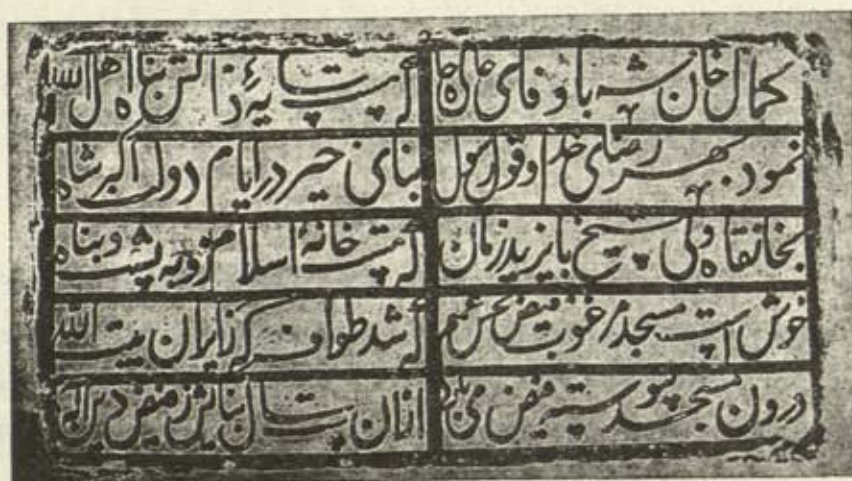 کمال خان شه با وفای عالی جاه که هست سایهٔ ذاتش پناه اهل الله
نمود بهر رضای خدا و قول رسول بنای خیر در ایام دولت اکبر شاه
بخانقاه ولی شیخ بایزید زمان که هست خانهٔ اسلام ازو به پشت و پناه
خوش است مسجد مرغوب فیض بخش عمیم که شد طواف که زایران بیت الله
درون مسجد پیوسته فیض می بارد ازان سال بنایش ز فیض